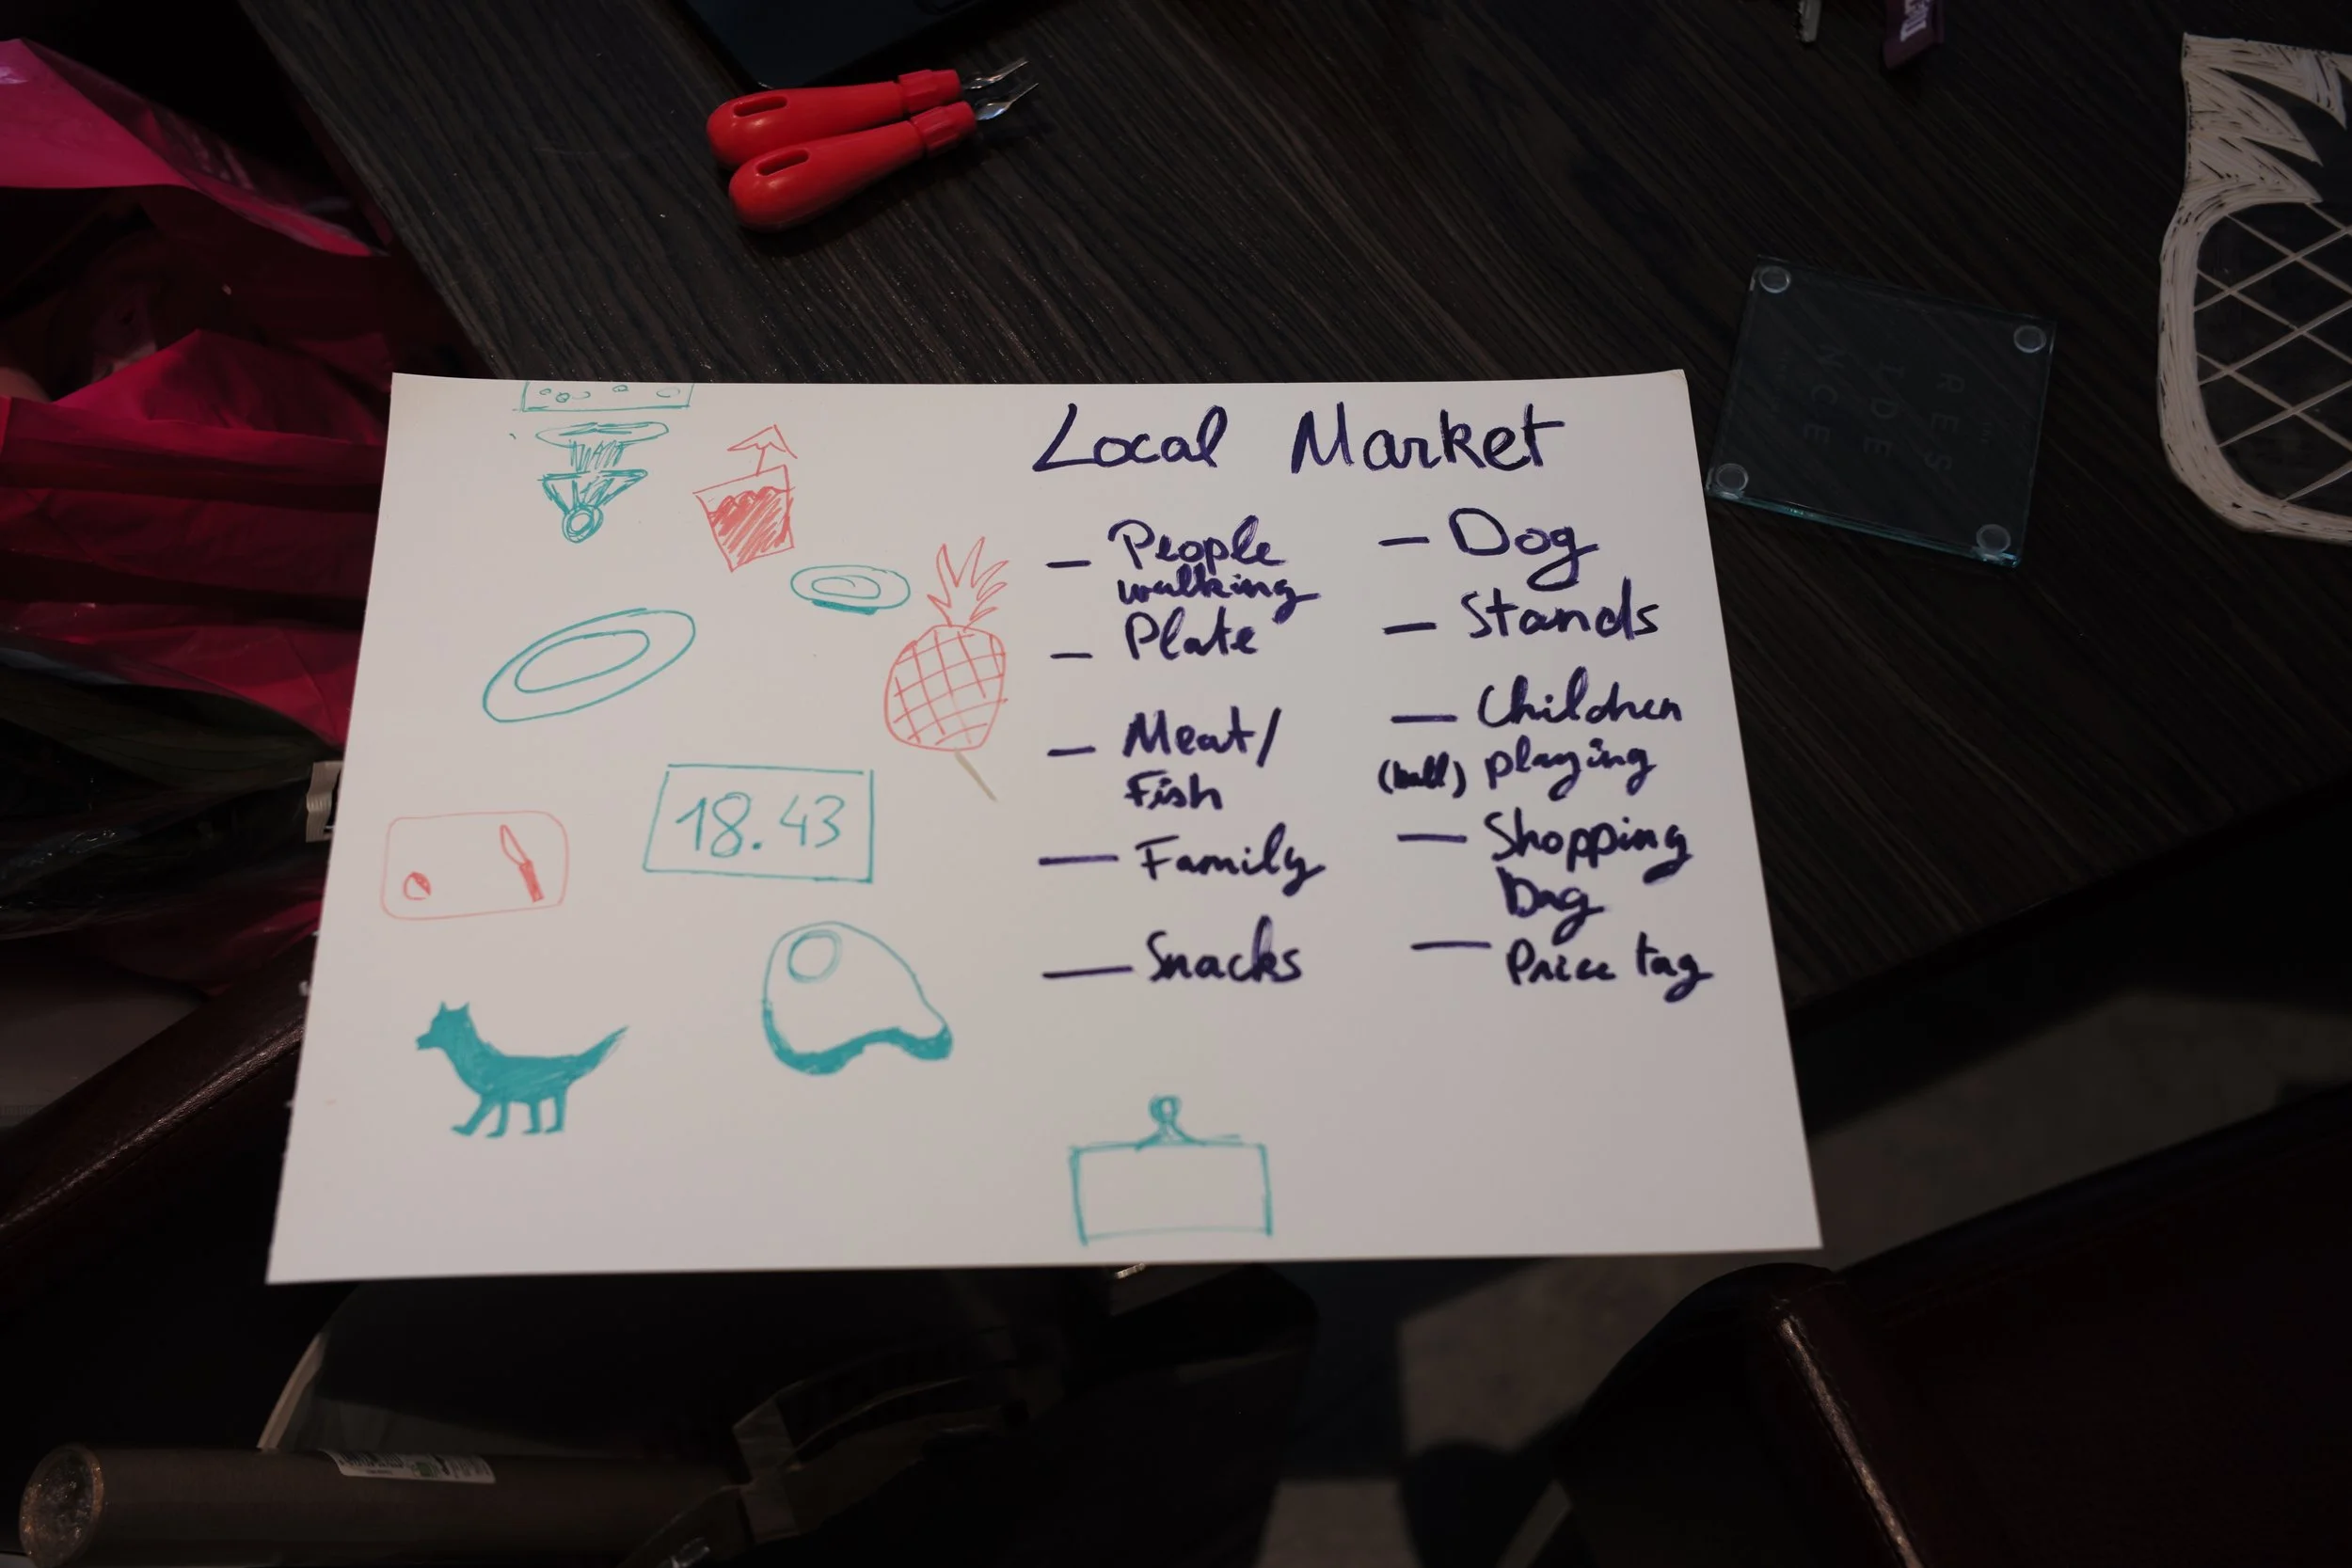 Local Market
– People
walking
– Plate
– Meat/
Fish
– Family
– Snacks
– Dog
– Stands
– Children
(ball) playing
– Shopping
Bag
– Price tag
18.43
RES
IDE
NCE